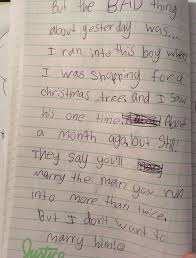 But the BAD thing
about yesterday was...
I ran into this boy when
I was shopping for a
christmas tree and I saw
his one time About
a month ago but still
They say you'll
marry the man you run
into more than twice,
But I don't want to
marry him!
Justice